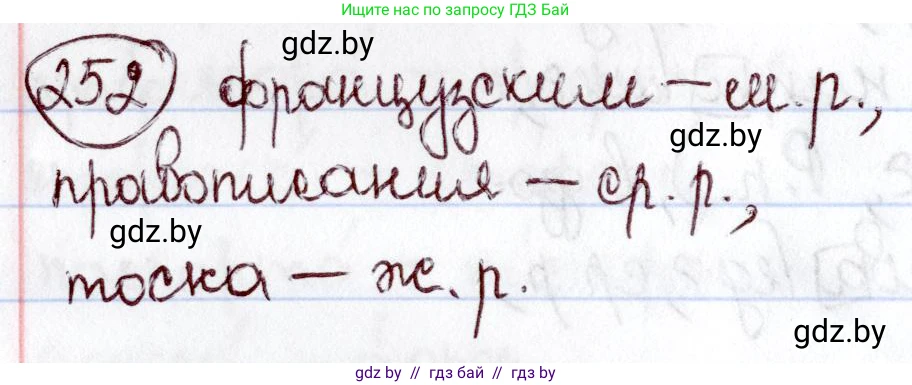 Ищите нас по запросу ГДЗ Бай
gdz.by
252 французским – м. р.,
gdz.by
правописания – ср. р.,
gdz.by
тоска – ж. р.
gdz.by
gdz.by // гдз бай // гдз by